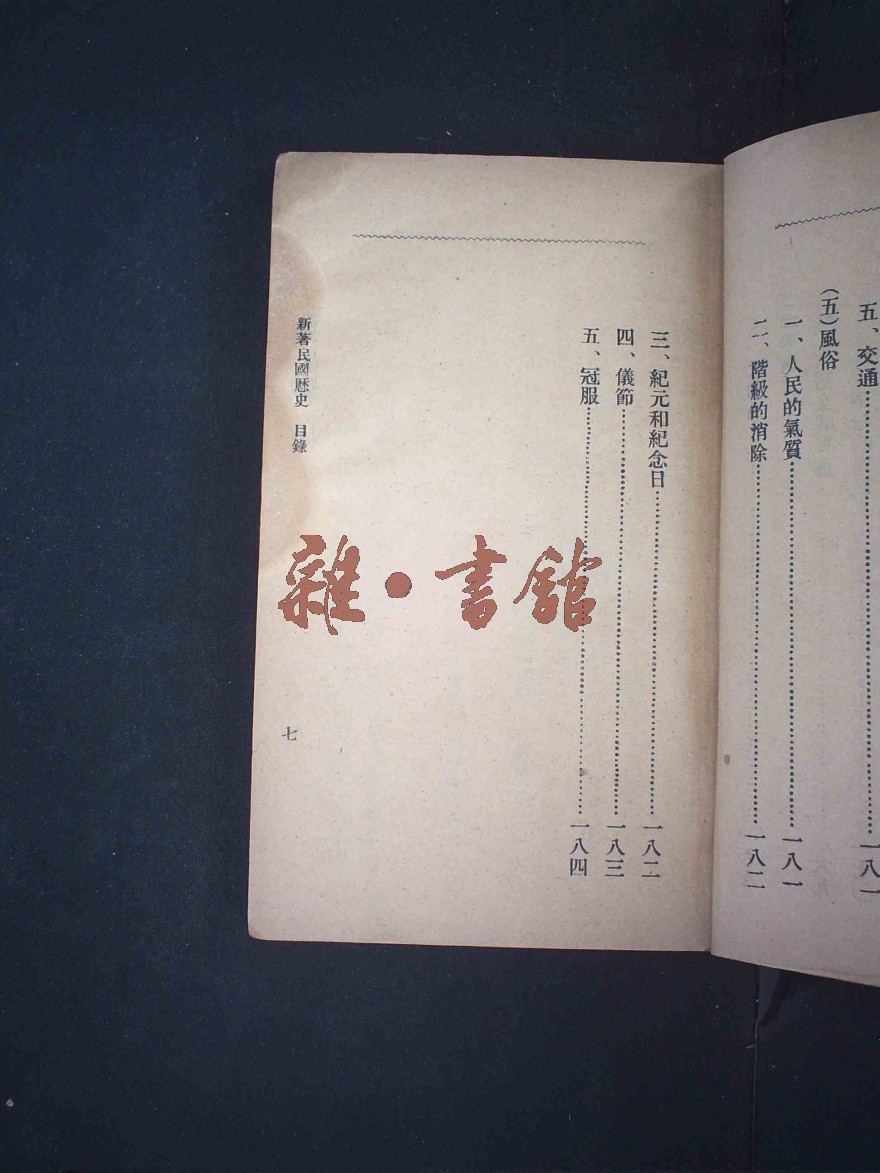 五、交通……一八一
(五)風俗
一、人民的氣質……一八一
二、階級的消除……一八二
三、紀元和紀念日……一八二
四、儀節……一八三
五、冠服……一八四
新著民國歷史 目錄
七
雜・書館